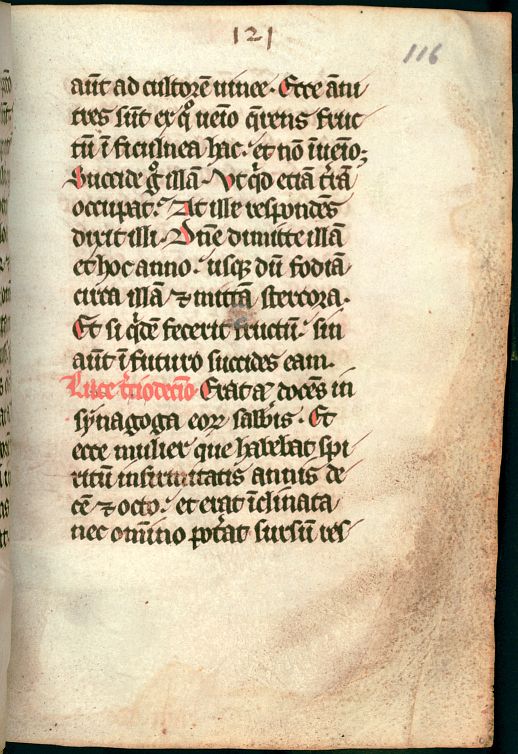 121
116
aūt ad cultorē uinee. Ecce āni
tres sūt ex qͦ uenīo q̄rens fruc
tū ī ficulnea hac. et nō īuenīo;
Succide gͦ illā. Vt qͥd etiā t̄rā
occupat. At ille respondēs
dixit illi. Dn̄e dimitte illā
et hoc anno. usqꝫ dū fodiā
circa illā ⁊ mittā stercora.
Et si qͥdē fecerit fructū. sin
aūt ī futuro succides eam.
Luce t̄ciodecīo Erat aꝫ docēs in
synagoga eoꝝ sabb̄is. Et
ecce mulier que habebat spi
ritū infirmitatis annis de
cē ⁊ octo. et erat īclinata
nec om̄ino pot̄at sursū res